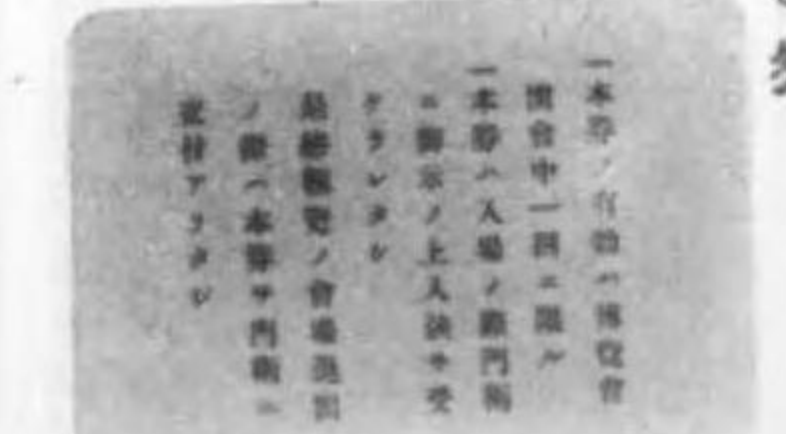 一本券ノ有効ハ博覧會
開會中一囘ニ限ル
一本券ハ入場ノ際門衛
ニ御示ノ上入鋏ヲ受
ケラレタシ
最終観覧ノ會場退出
ノ際ハ本券ヲ門衛ニ
アリタシ